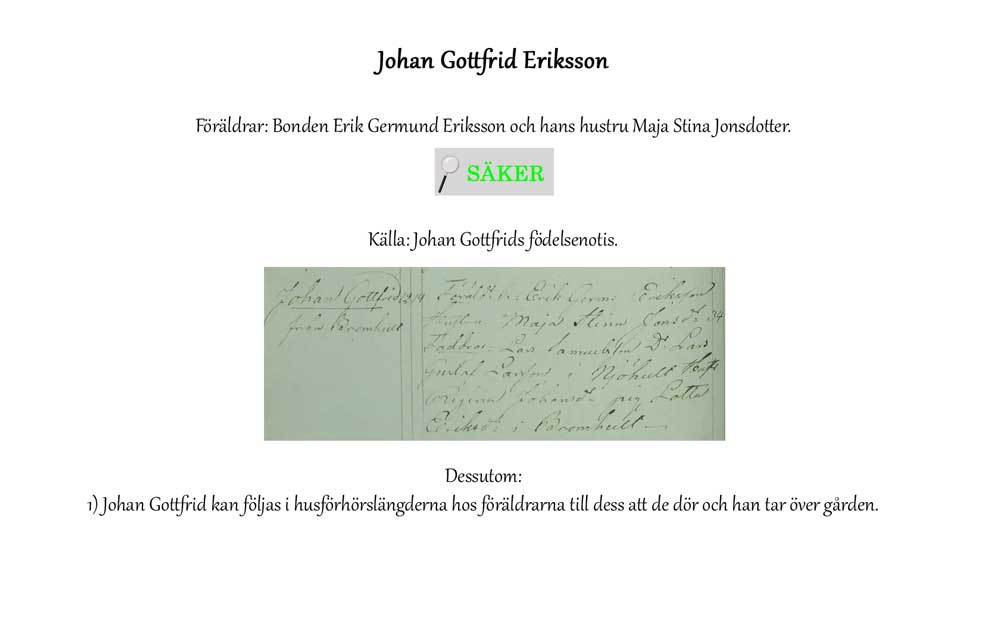 Johan Gottfrid Eriksson
Föräldrar: Bonden Erik Germund Eriksson och hans hustru Maja Stina Jonsdotter.
SÄKER
Källa: Johan Gottfrids födelsenotis.
Johan Gottfrid 12 14
från Bromhult
Föräld: Erik Germ: Eriksson
Hustru Maja Stina Jonsd: 34
Faddrar: Lars Samuelsson Dr Lars
Gustaf Larsson i Njöhult
Regina Johansd: pig Lotta
Eriksd: i Bromhult
Dessutom:
1) Johan Gottfrid kan följas i husförhörslängderna hos föräldrarna till dess att de dör och han tar över gården.